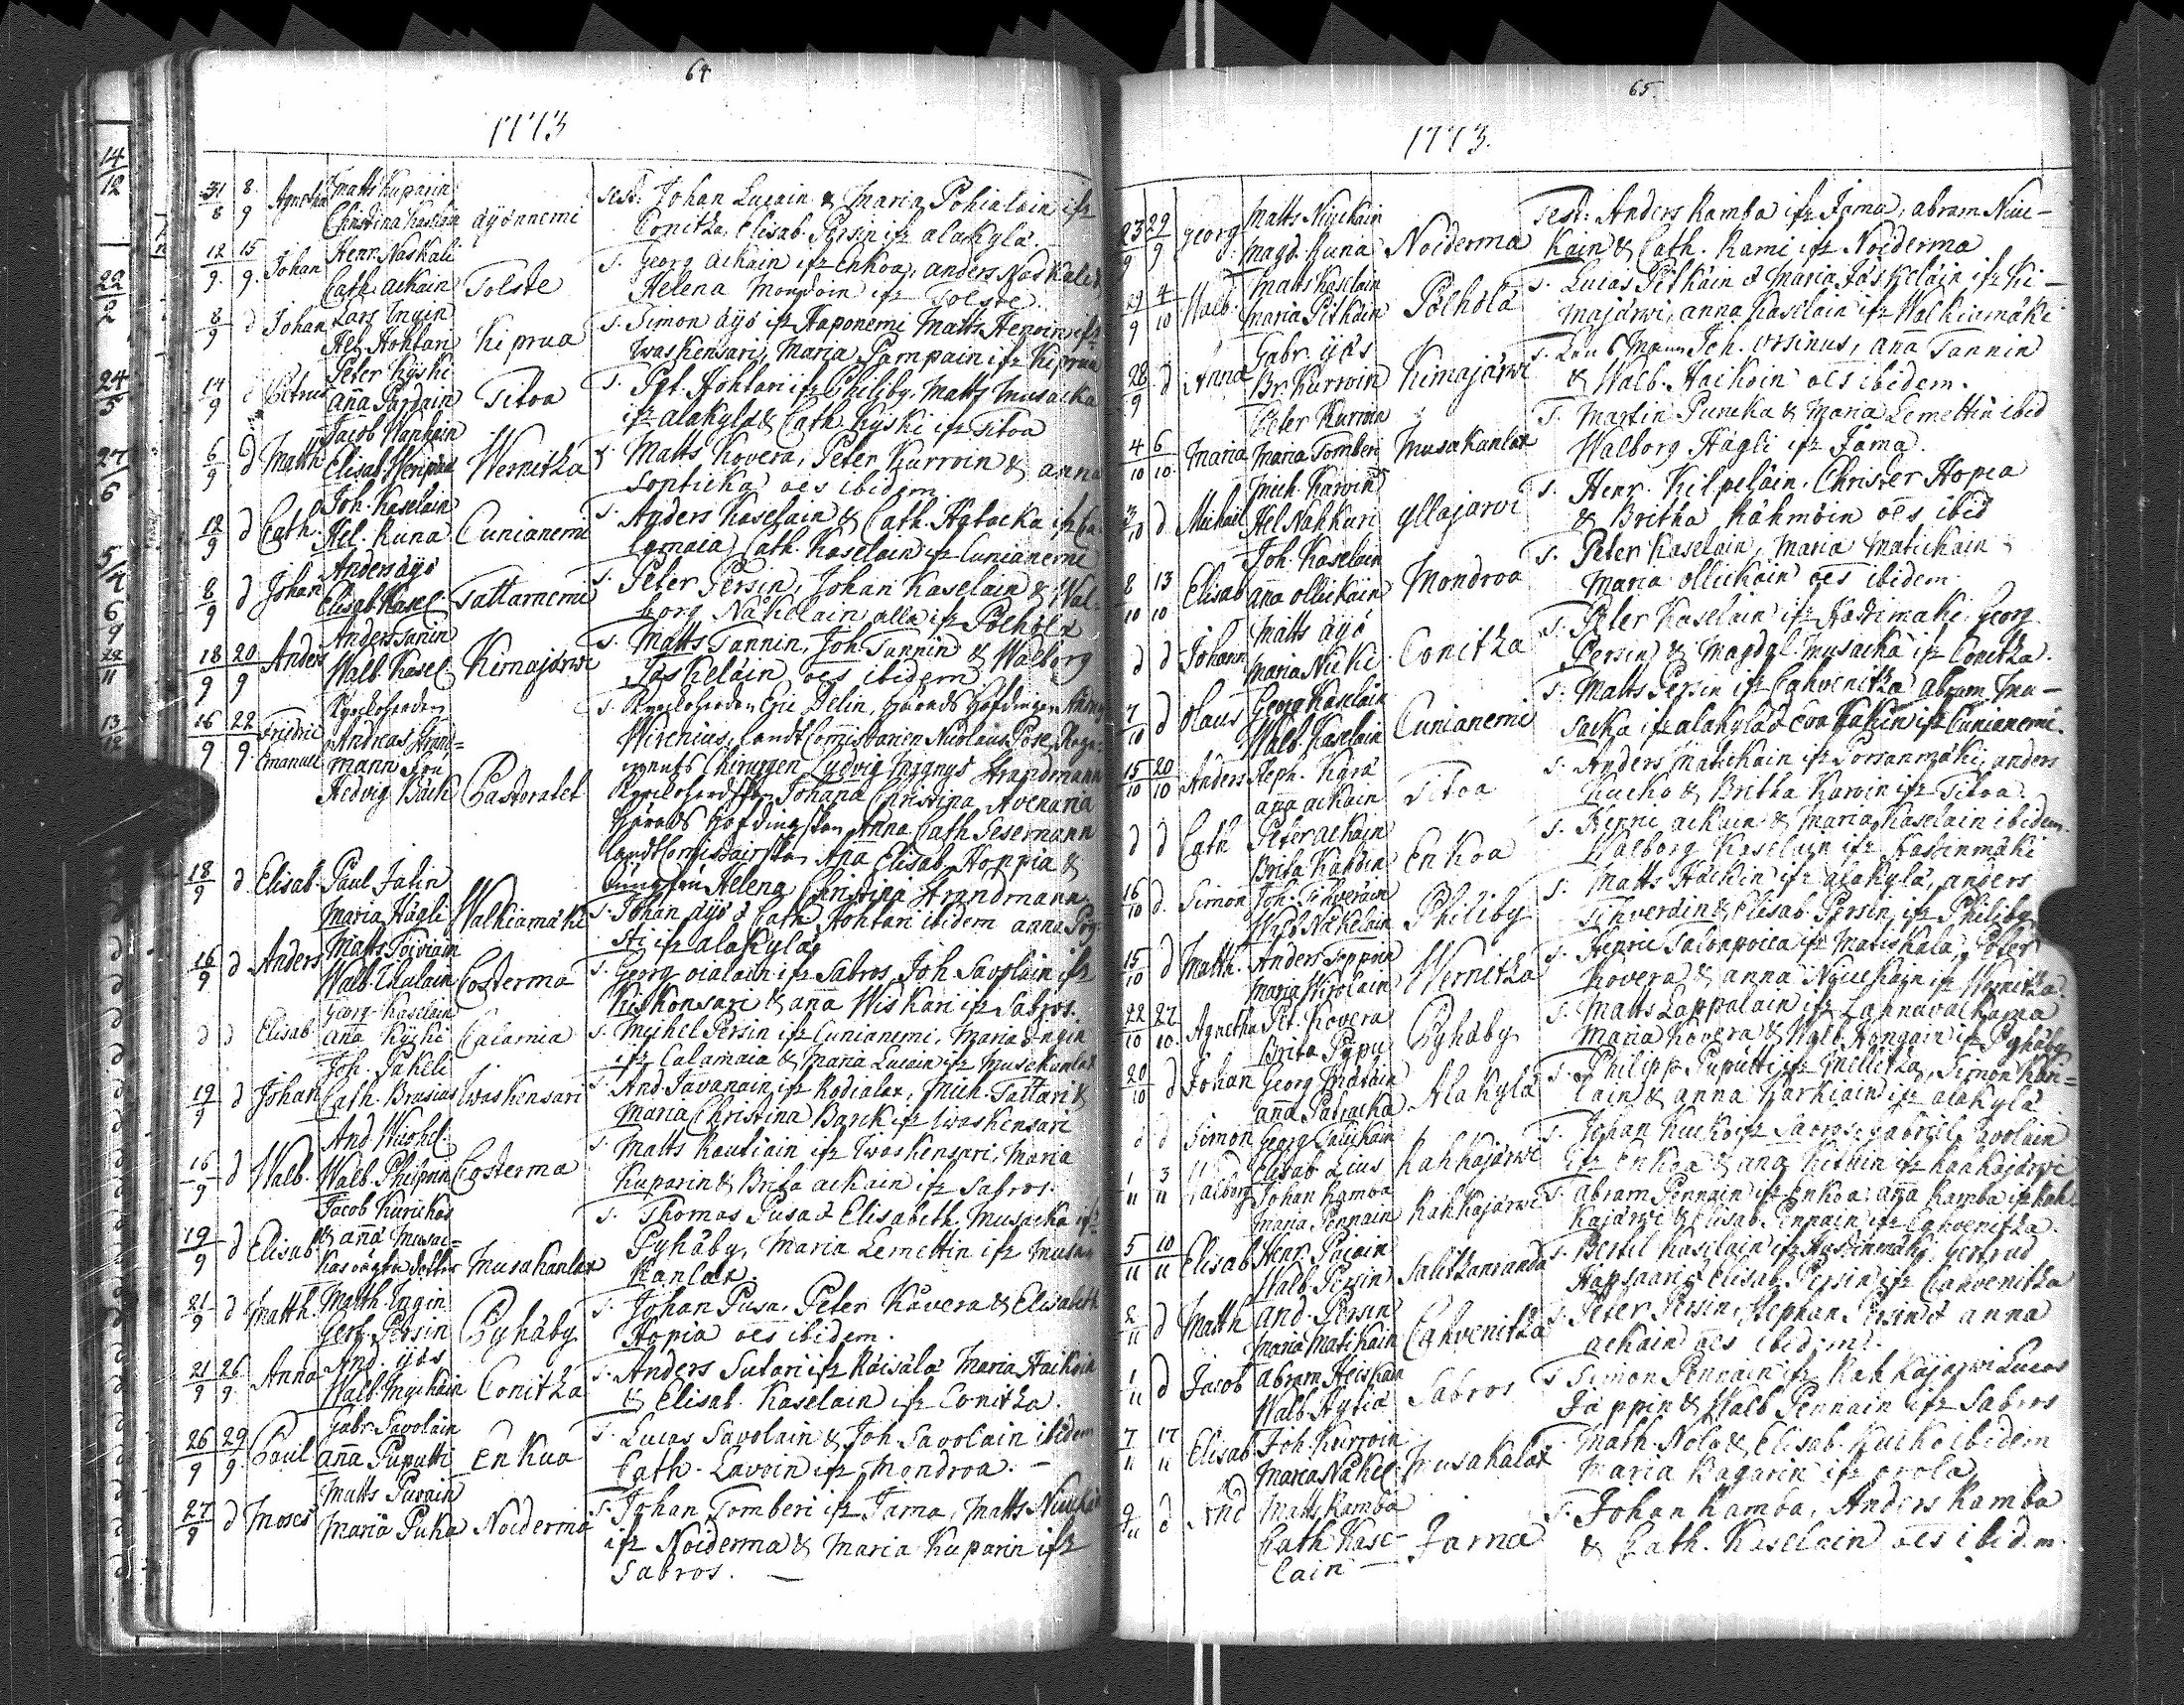 64
1773
31/8 8/9 Agnetha Matts Kuparin
Christina Kaselain äyönnemi Test: Johan Lucain & Maria Pohialain ifr
Conitza, Elisab. Persin ifr alakylä.
12/9 15/9 Johan Henr. Naskali
Cath. ackain Tolste T. Georg ackain ifr Enkoa, anders Naskali &
Helena Mondoin ifr Tolste.
8/9 d Johan Lars Ingin
Hel. Hohtari Kiprua T. Simon äyö ifr Haponemi Matts Henoin ifr
Waskensari, Maria Pampain ifr Kiprua
14/9 d Petrus Peter Kyski
aña Pardain Titoa T. Pet. Hohtari ifr Philiby, Matts Musacka
ifr alakylä & Cath. Kyski ifr Titoa
6/9 d Matth Jacob Wanhain
Elisab. Weripää Wernitza T. Matts Kovera, Peter Kurroin & anna
Sopticka oes ibidem.
12/9 d Cath. Joh. Kaselain
Hel. Runa Cunianemi T. Anders Kaselain & Cath. Hatacka ifr Ca-
lamaia, Cath. Kaselain ifr Cunianemi
8/9 d Johan Anders äyö
Elisab Kasel Tattarnemi T. Peter Persin, Johan Kaselain & Wal-
borg Näkelain alla ifr Pölhölä
18/9 20/9 Anders Anders Tanin
Walb. Kasel Kimajärwi T. Matts Tannin, Joh. Tannin & Walborg
Jäskeläin oes ibidem
16/9 22/9 Fridric
Emanuel Kyrckoherden
Andreas Strand=
mann Fru
Hedvig Bäck Pastoratet T. Kyrckoherden Eric Delin, Härads Höfdingen
Wirenius, Landt Comissarien Nicolaus Pose, Rege-
ments Chirurgen Ludvig Magnus Strandmann
Kyrckoherdskan Johana Christina Avenaria
Härads Höfdingskan Anna Cath. Sesemann
Landt Comissairskan Aña Elisab. Hoppia &
Jungfru Helena Christina Strandmann
18/9 d Elisab. Paul Jalin
Maria Hägli Walkiamäki T. Johan äyö & Cath. Hohtari ibidem anna
ifr alakylä
16/9 d Anders Matts Toiviain
Walb. Costerma T. Georg oialain ifr Sabros, Joh. Savolain ifr
Kiskonsari & aña Wiskari ifr Sabros.
d d Elisab Georg Kaselain
aña Kyski Calamia T. Michel Persin ifr Cunianemi, Maria Ingin
ifr Calamaia & Maria Lucain ifr Musakanlax
19/9 d Johan Joh. Pakeli
Cath. Brusius Waskensari T. And Savanain ifr Rodialax, Mich. Tattari &
Maria Christina Barck ifr Waskensari
16/9 d Walb. And
Walb. Philpoin Costerma T. Matts Rautiain ifr Waskensari, Maria
Kuparin & Brita ackain ifr Sabros.
19/9 d Elisab Jacob Kurickas
& aña Musac=
kas oägta dotter Musakanlax T. Thomas Pusa & Elisabeth Musacka ifr
Pyhäby, Maria Lemettin ifr Musa-
kanlax.
21/9 d Matth. Matth Ingin
Gert. Persin Pyhäby T. Johan Pusa, Peter Kåvera & Elisabeth
Hopia oes ibidem.
21/9 26/9 Anna And. iyäs
Walb. Mychain Conitza T. Anders Sutari ifr Räisälä Maria Haikoin
& Elisab. Kaselain ifr Conitza
26/9 29/9 Paul Gabr. Savolain
aña Puputti Enkua T. Lucas Savolain & Joh. Savolain ibidem
Cath. Lavoin ifr Mondroa. —
27/9 d Moses Matts Purain
Maria Puka Noiderma T. Johan Tomberi ifr Jama, Matts Niuckain
ifr Noiderma & Maria Kuparin ifr
Sabros. —
65
1773.
23/9 29/9 Georg Matts Niuckain
Magd. Runa Noiderma Test: Anders Ramba ifr Jama, abram Niuc-
kain & Cath. Rami ifr Noiderma
29/9 4/10 Walb. Matts Kaselain
Maria Pitkäin Pölhölä T. Lucas Pitkäin & Maria Jäskeläin ifr Ki-
majärwi, anna Kaselain ifr Walkiamäki
28/9 d Anna Gabr. iyäs
Br. Kurroin Kimajärwi T. Joh. Ursinus, aña Tannin
& Walb. Haikoin oes ibidem.
4/10 6/10 Maria Peter Kurroin
Maria Tomberi Musakanlax T. Martin Puncka & Maria Lemettin ibid
Walborg Hägli ifr Jama.
3/10 d Michael Mich. Karvin
Hel Nahkuri yllajarvi T. Henr. Kilpeläin, Christer Hopia
& Britha Kähmöin oes ibid
8/10 13/10 Elisab Joh. Kaselain
aña ollickain Mondroa T. Peter Kaselain, Maria Matickain
Maria ollickain oes ibidem.
d d Johann Matts äyö
Maria Nicki Conitza T. Peter Kaselain ifr Hastimaki, Georg
Persin & Magdal. Musacka ifr Conitza.
7/10 d Olaus Georg Kaselain
Walb. Kaselain Cunianemi T. Matts Persin ifr Cahvenitza abram Mu-
sacka ifr alakylä & Eva Kakin ifr Cunianemi.
15/10 20/10 Anders Steph. Kärä
aña ackain Titoa T. Anders Matickain ifr Porsanmäki, anders
Kucko & Britha Karvin ifr Titoa.
d d Cath Peter ackain
Brita Kähöin Enkoa T. Henric ackain & Maria Kaselain ibidem
Walborg Kaselain ifr Hastinmäki
16/10 d. Simon Joh. Tihveräin
Walb Näkelain Philiby T. Matts Hackin ifr alakylä, anders
Tihverdin & Elisab. Persin ifr Philiby
15/10 d Matth. Anders Soppin
Maria Wirolain Wernitza T. Henric Talonpoica ifr Matiskala, Peter
Kovera & anna Niuckain ifr Wernitza.
22/10 27/10 Agnetha Pet. Kovera
Brita Pypu Pyhäby T. Matts Lappalain ifr Lahnavalkama
Maria Kovera & Walb. Hongain ifr Pyhäby
20/10 d Johan Georg
aña Patracka Alakylä T. Philipp Puputti ifr Mellitza, Simon Kari=
lain & anna Harkiäin ifr alakylä
d d Simon Georg Talickain
Elisab Lius Kahkajärwi T. Johan Kucko ifr Sabros, Gabriel Savolain
ifr Enkoa & aña ifr Kahkajärwi
1/11 3/11 Walborg Johan Ramba
Maria Pennain Kahkajärwi T. abram Pennain ifr Enkoa, aña Ramba ifr Kahk-
kajärwi & Elisab. Pennain ifr Cahvenitza.
5/11 10/11 Elisab Henr. Paiain
Walb. Persin Salitzanranda T. Bertil Kaselain ifr Hastinmäki, Gertrud
Hapsaari & Elisab. Persin ifr Cahvenitza
2/11 d Matth And. Persin
Maria Matikain Cahvenitza T. Peter Persin, Stephan Persin & anna
ackain oes ibidem.
1/11 d Jacob Abram Heiskain
Walb Hytiä Sabros T Simon Pennain ifr Kahkajärwi Lucas
Jäppin & Walb Pennain ifr Sabros
7/11 17/11 Elisab Joh. Kurroin
Maria Näkel Musakalax T. Math. Nolo & Elisab. Kucko ibidem
Maria Kagarin ifr orola
9/11 d And Matts Ramba
Cath Kase-
lain Jama T. Johan Ramba, Anders Ramba
& Cath. Kaselain oes ibidem.